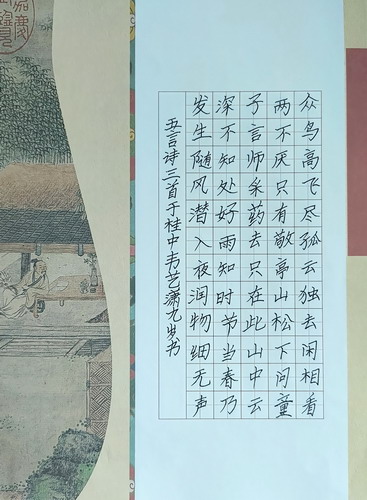 众鸟高飞尽孤云独去闲相看
两不厌只有敬亭山松下问童
子言师采药去只在此山中云
深不知处好雨知时节当春乃
发生随风潜入夜润物细无声
五言诗三首于桂中韦艺潇九岁书